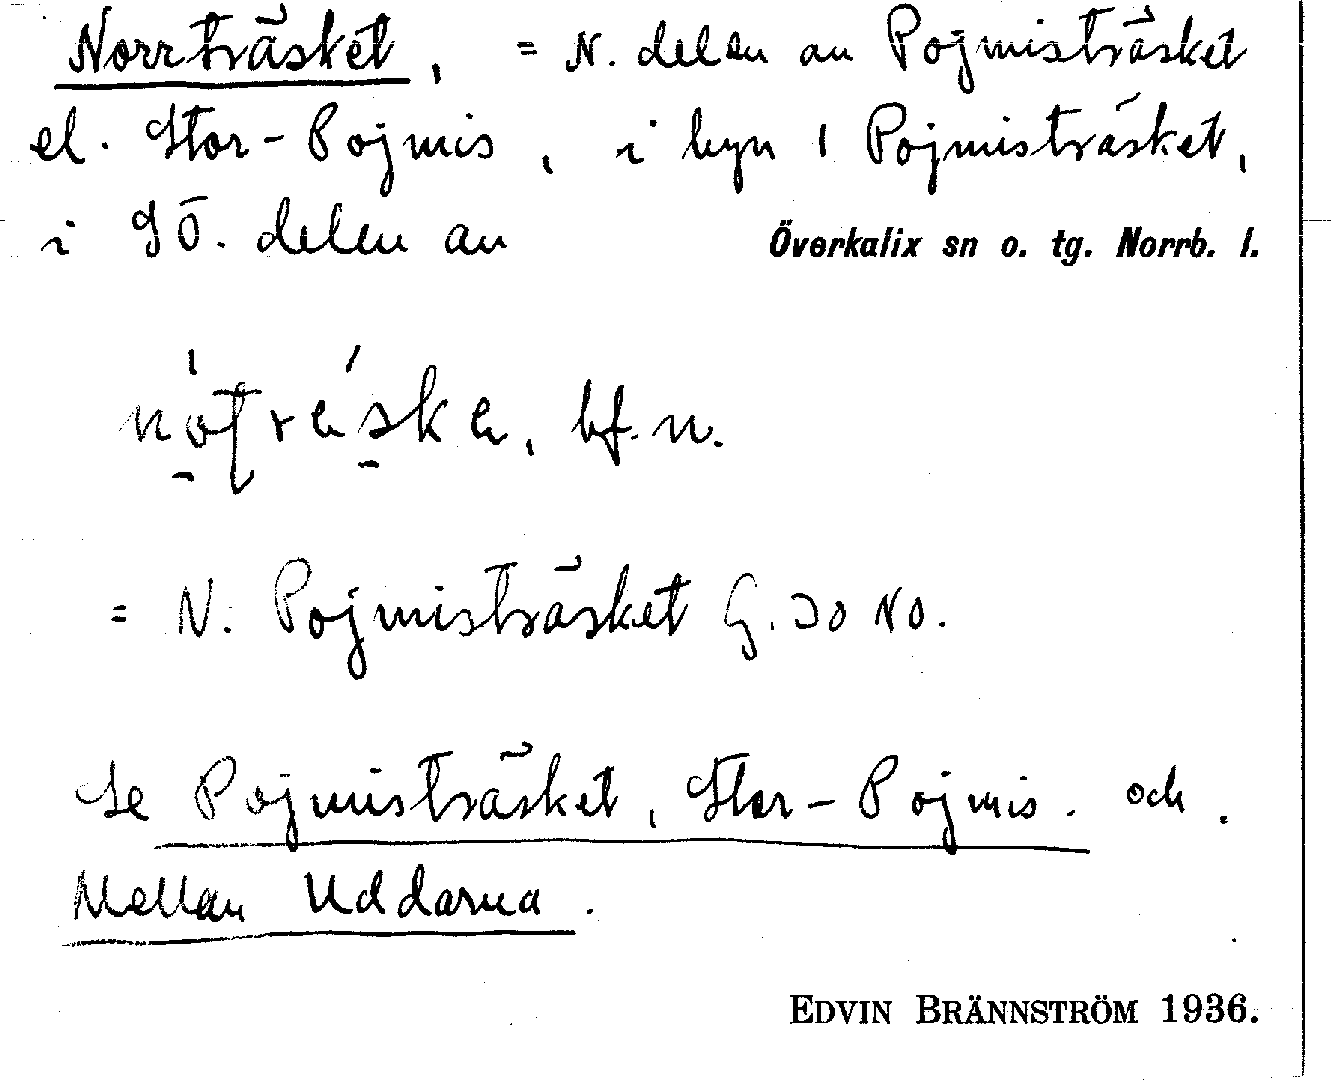 Norrträsket, = N. delen av Pojmisträsket
el. Stor-Pojmis, i byn 1 Pojmisträsket,
i SÖ. delen av Överkalix sn o. tg. Norrb. l.
bf. n.
= N. Pojmisträsket G. 30 NO.
Se Pojmisträsket, Stor-Pojmis. och
Mellan Uddarna.
EDVIN BRÄNNSTRÖM 1936.